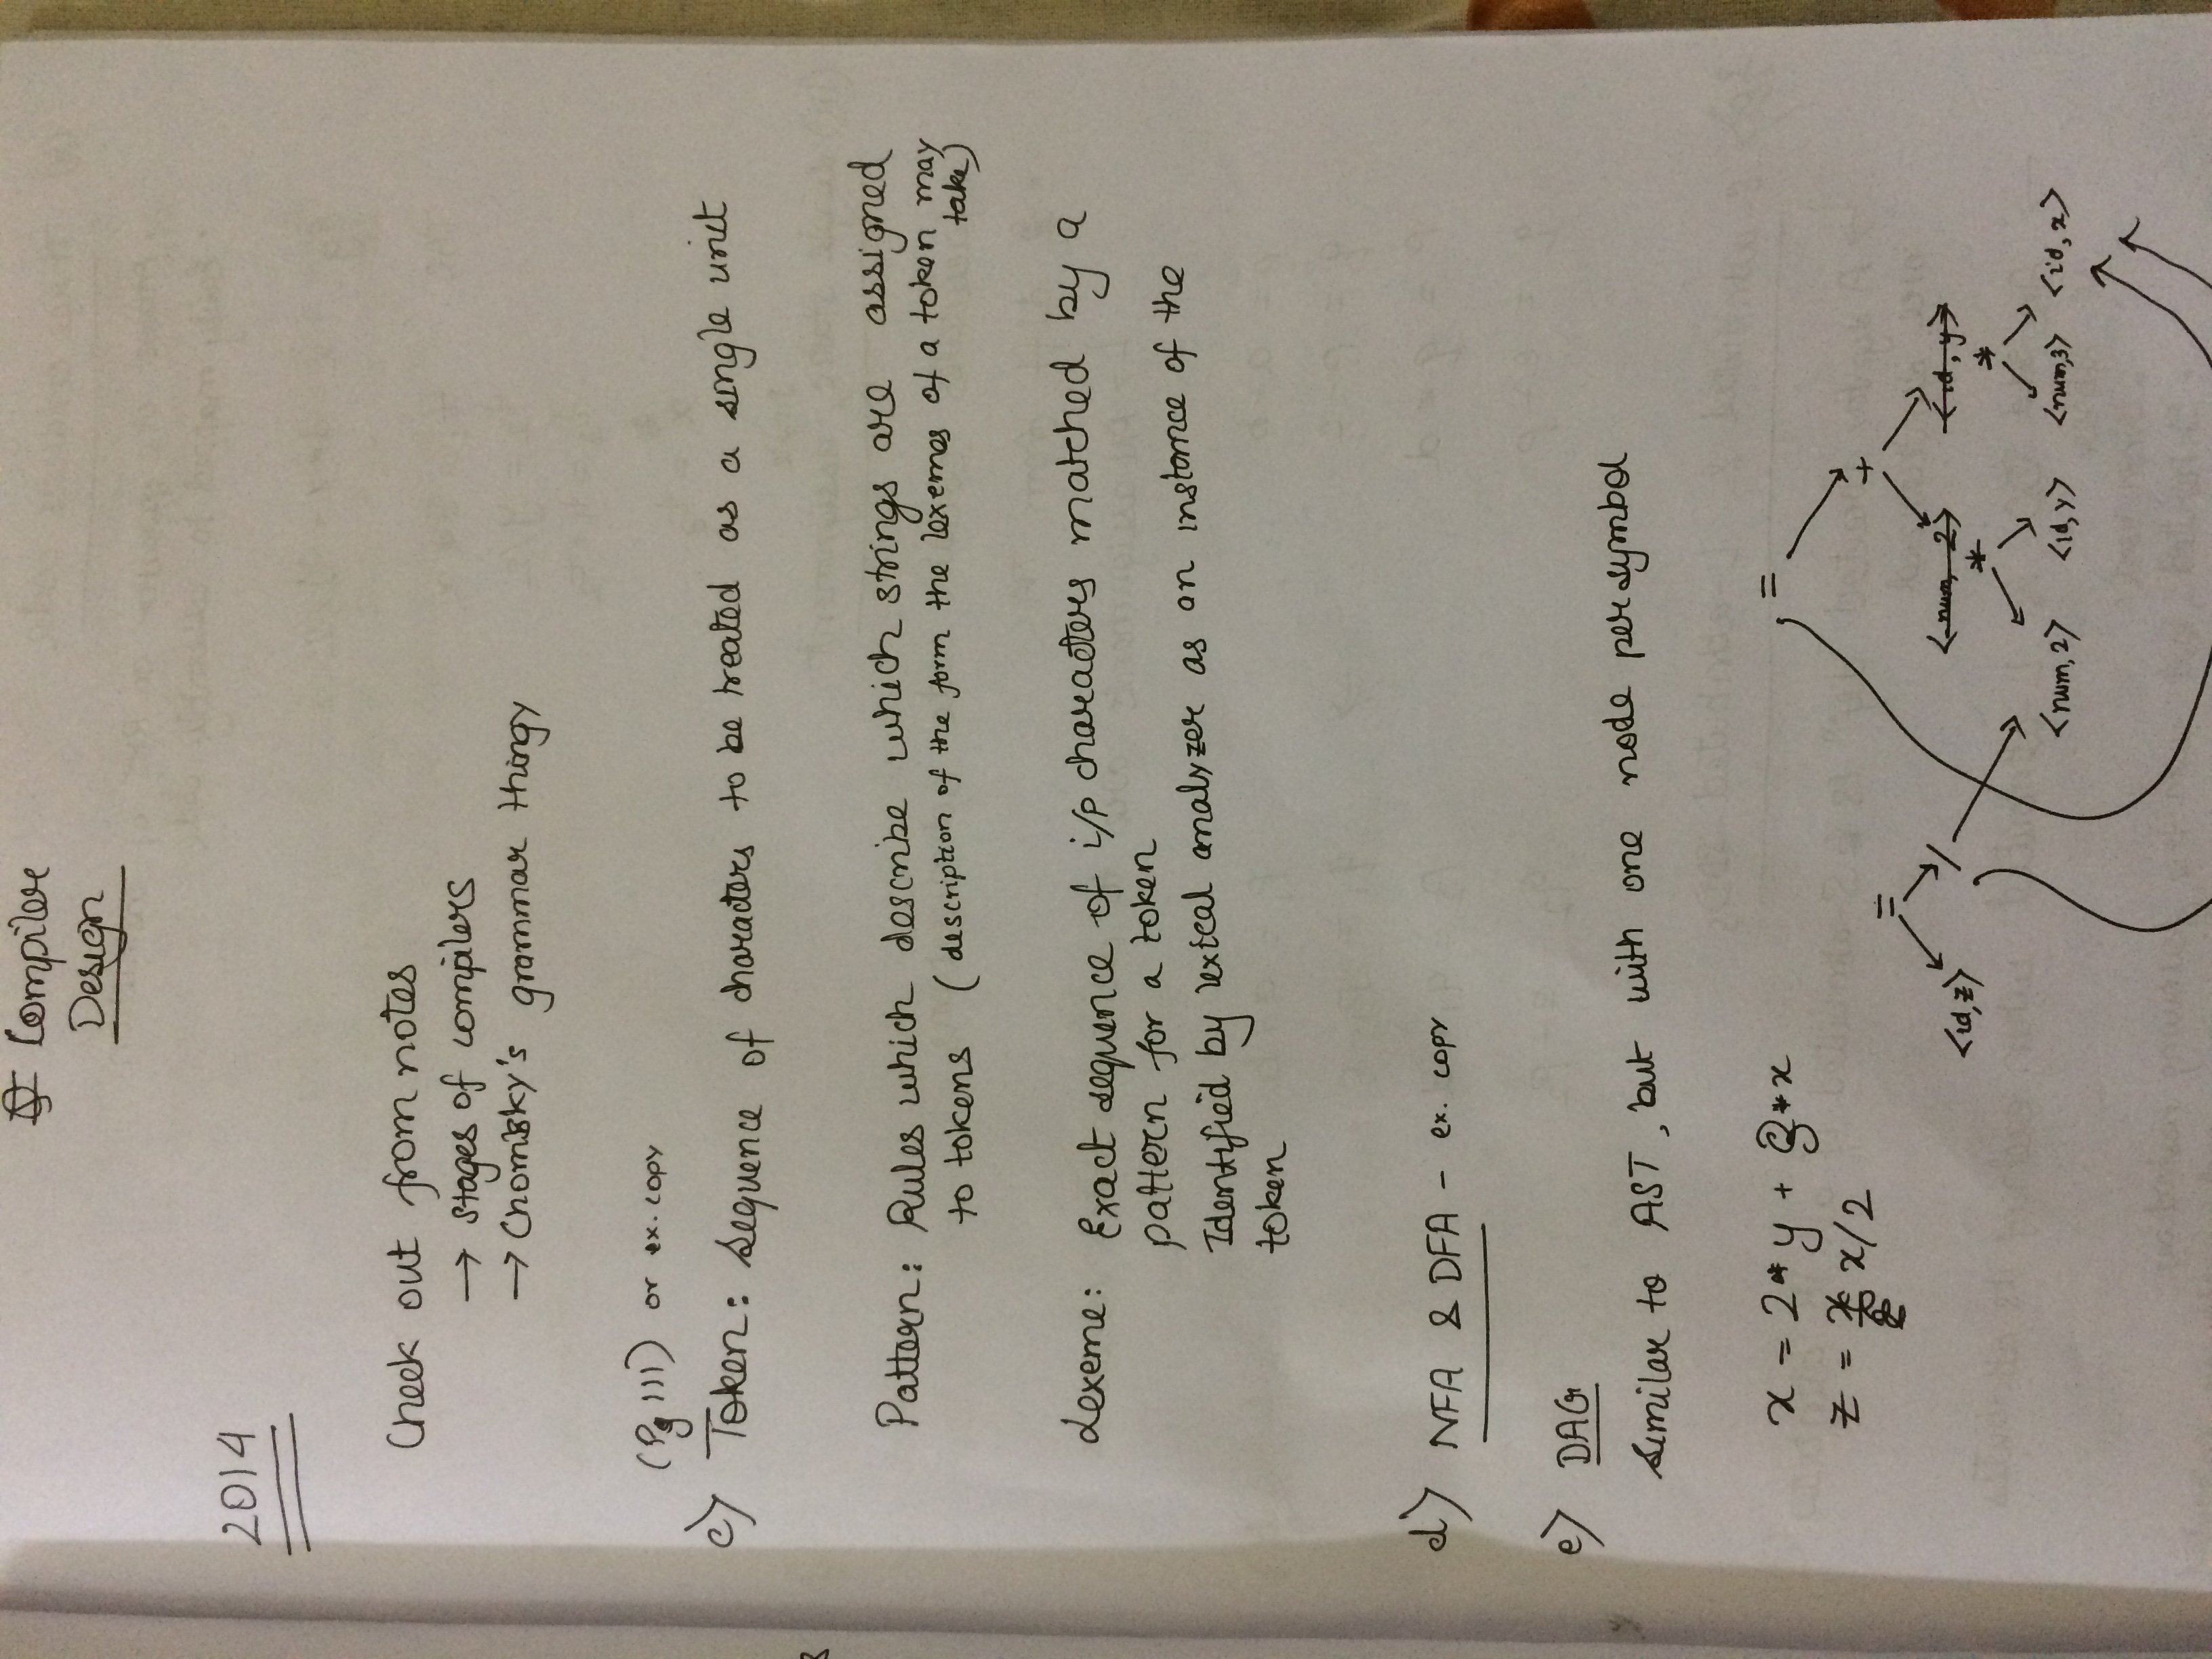 Compiler
Design
2014
Check out from notes
→ stages of compilers
→ Chomsky's grammar thingy
(Pg 111) or ex. copy
c) Token: Sequence of characters to be treated as a single unit
Pattern: Rules which describe which strings are assigned
to tokens (description of the form the lexemes of a token may
take)
Lexeme: Exact sequence of i/p characters matched by a
pattern for a token
Identified by lexical analyzer as an instance of the
token
d) NFA & DFA - ex. copy
e) DAG
Similar to AST, but with one node per symbol
x = 2*y + 3*x
z = x/2
=
+
=
<num, 2> <id, y>
<id,z> /
* *
<num,2> <id,y> <num,3> <id,x>